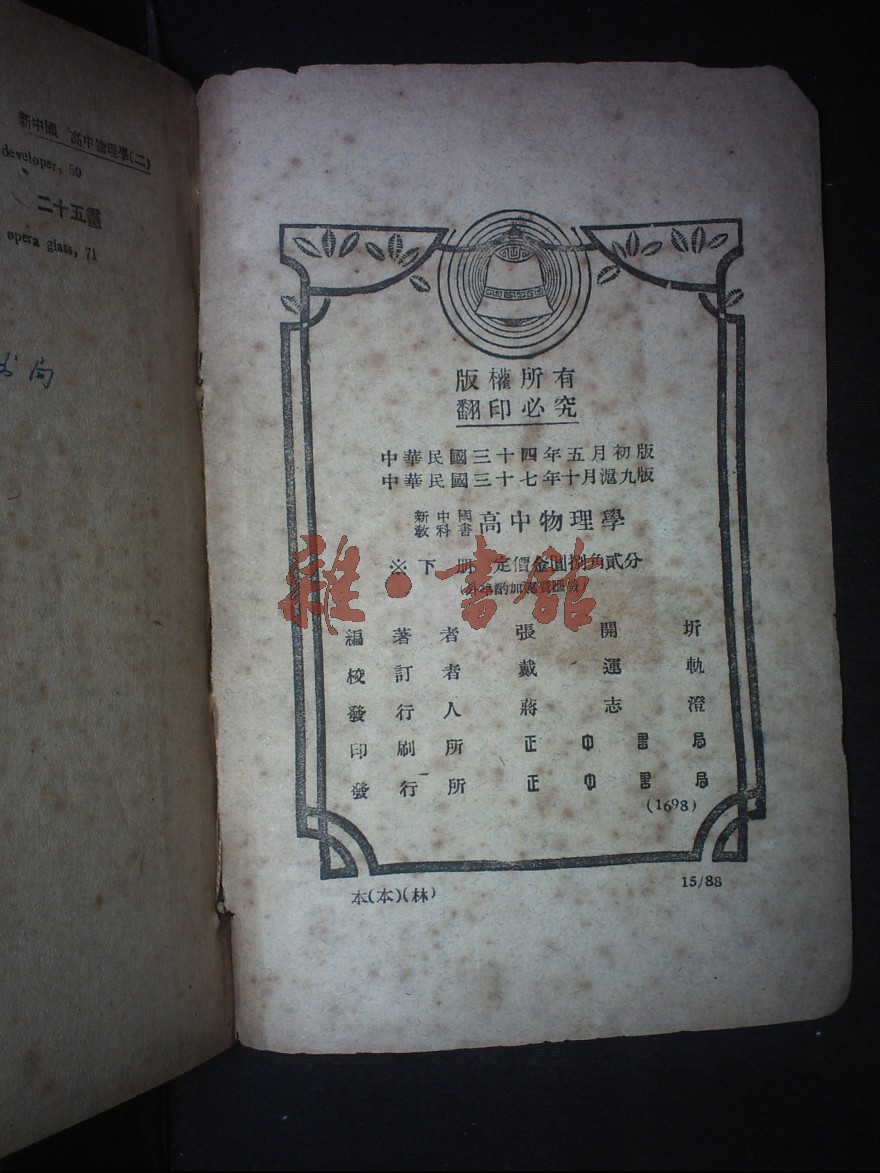 新中國 高中物理學(二)
developer, 59
二十五畫
opera glass, 71
书局
版權所有
翻印必究
中華民國三十四年五月初版
中華民國三十七年十月滬九版
新中國教科書 高中物理學
※下 冊 定價金圓捌角貳分
雜·書館
編著者 張開圻
校訂者 戴運軌
發行人 蔣志澄
印刷所 正中書局
發行所 正中書局
(1698)
本(本)(林)
15/88